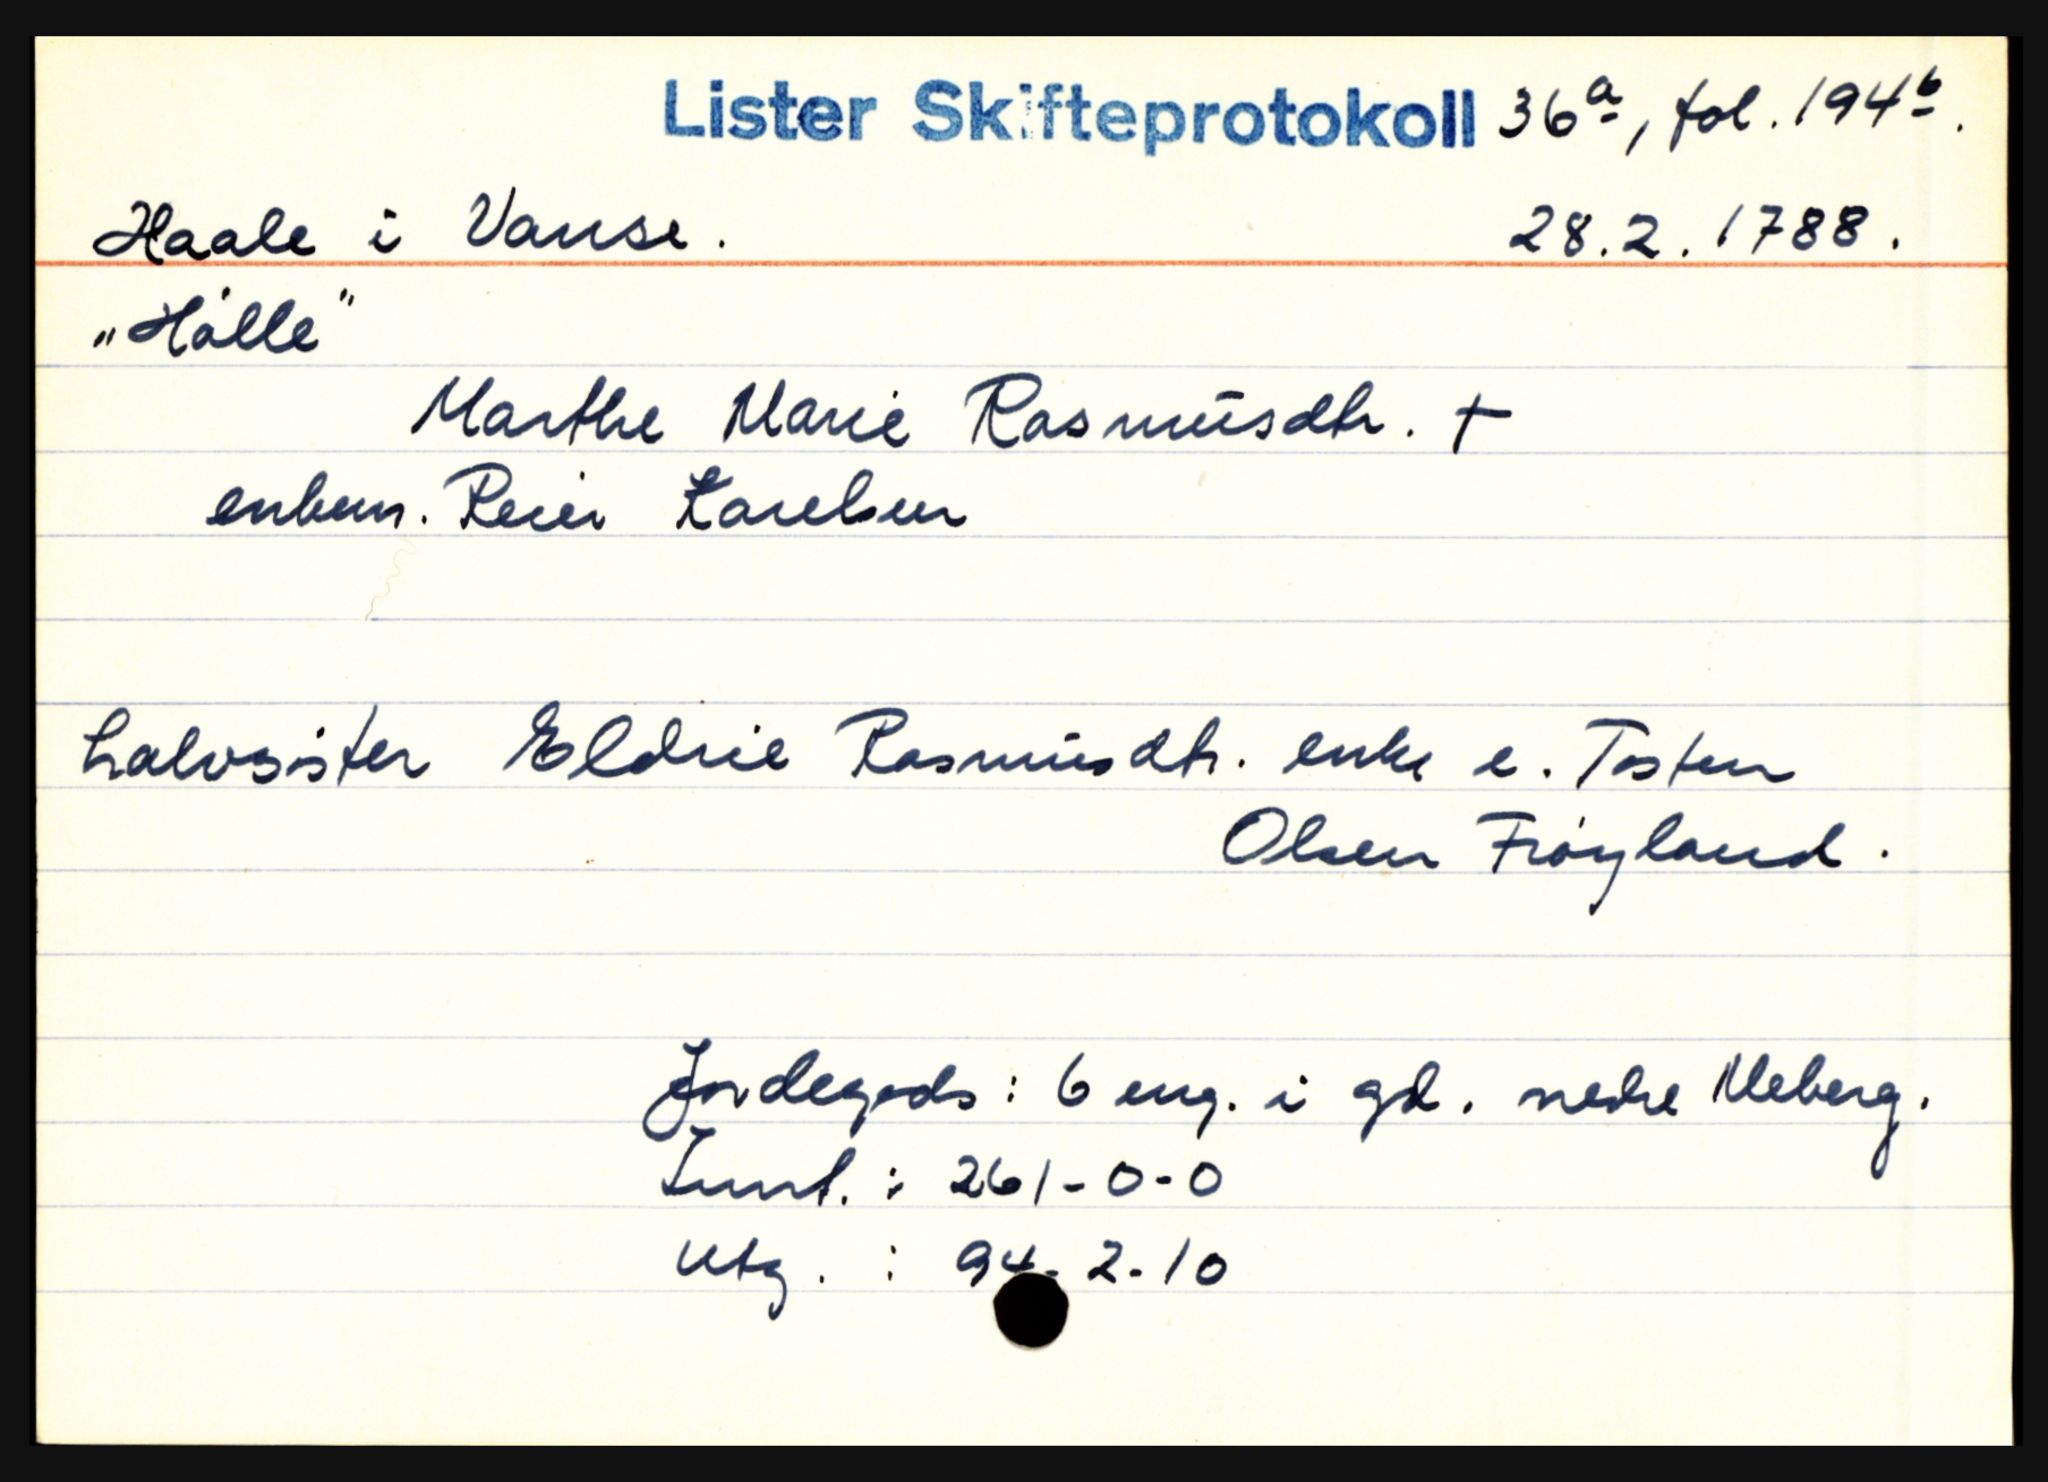 Lister Skifteprotokoll 36a, fol. 194b.
Haale i Vanse. 28.2.1788.
„Hölle"
Marthe Marie Rasmusdtr. †
enkem. Reier Karelsen
halvsøster Eldrie Rasmusdtr. enke e. Tosten
Olsen Frøyland.
Jordegods: 6 eng. i gd. nedre Meberg.
Innt. : 261-0-0
Utg. : 94-2-10